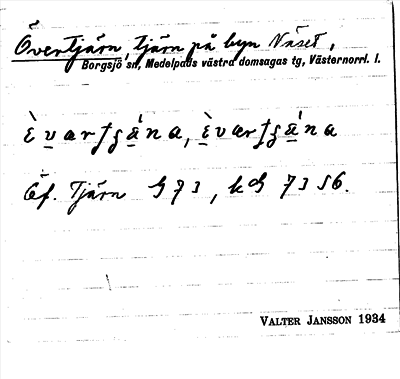 Övertjärn, tjärn på byn Näset,
Borgsjö sn, Medelpads västra domsagas tg, Västernorrl. l.
Öf. Tjärn G 73, kG 73 56.
VALTER JANSSON 1934